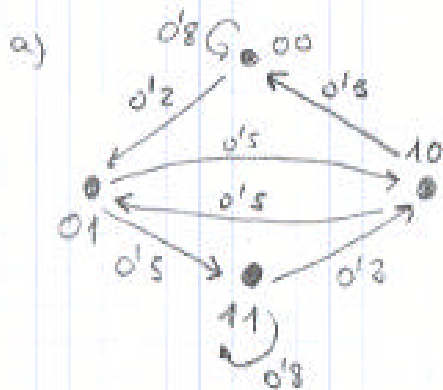 a) 0'8 00
0'2 0'5
0'5 10
01 0'5
0'5 0'2
11
0'8